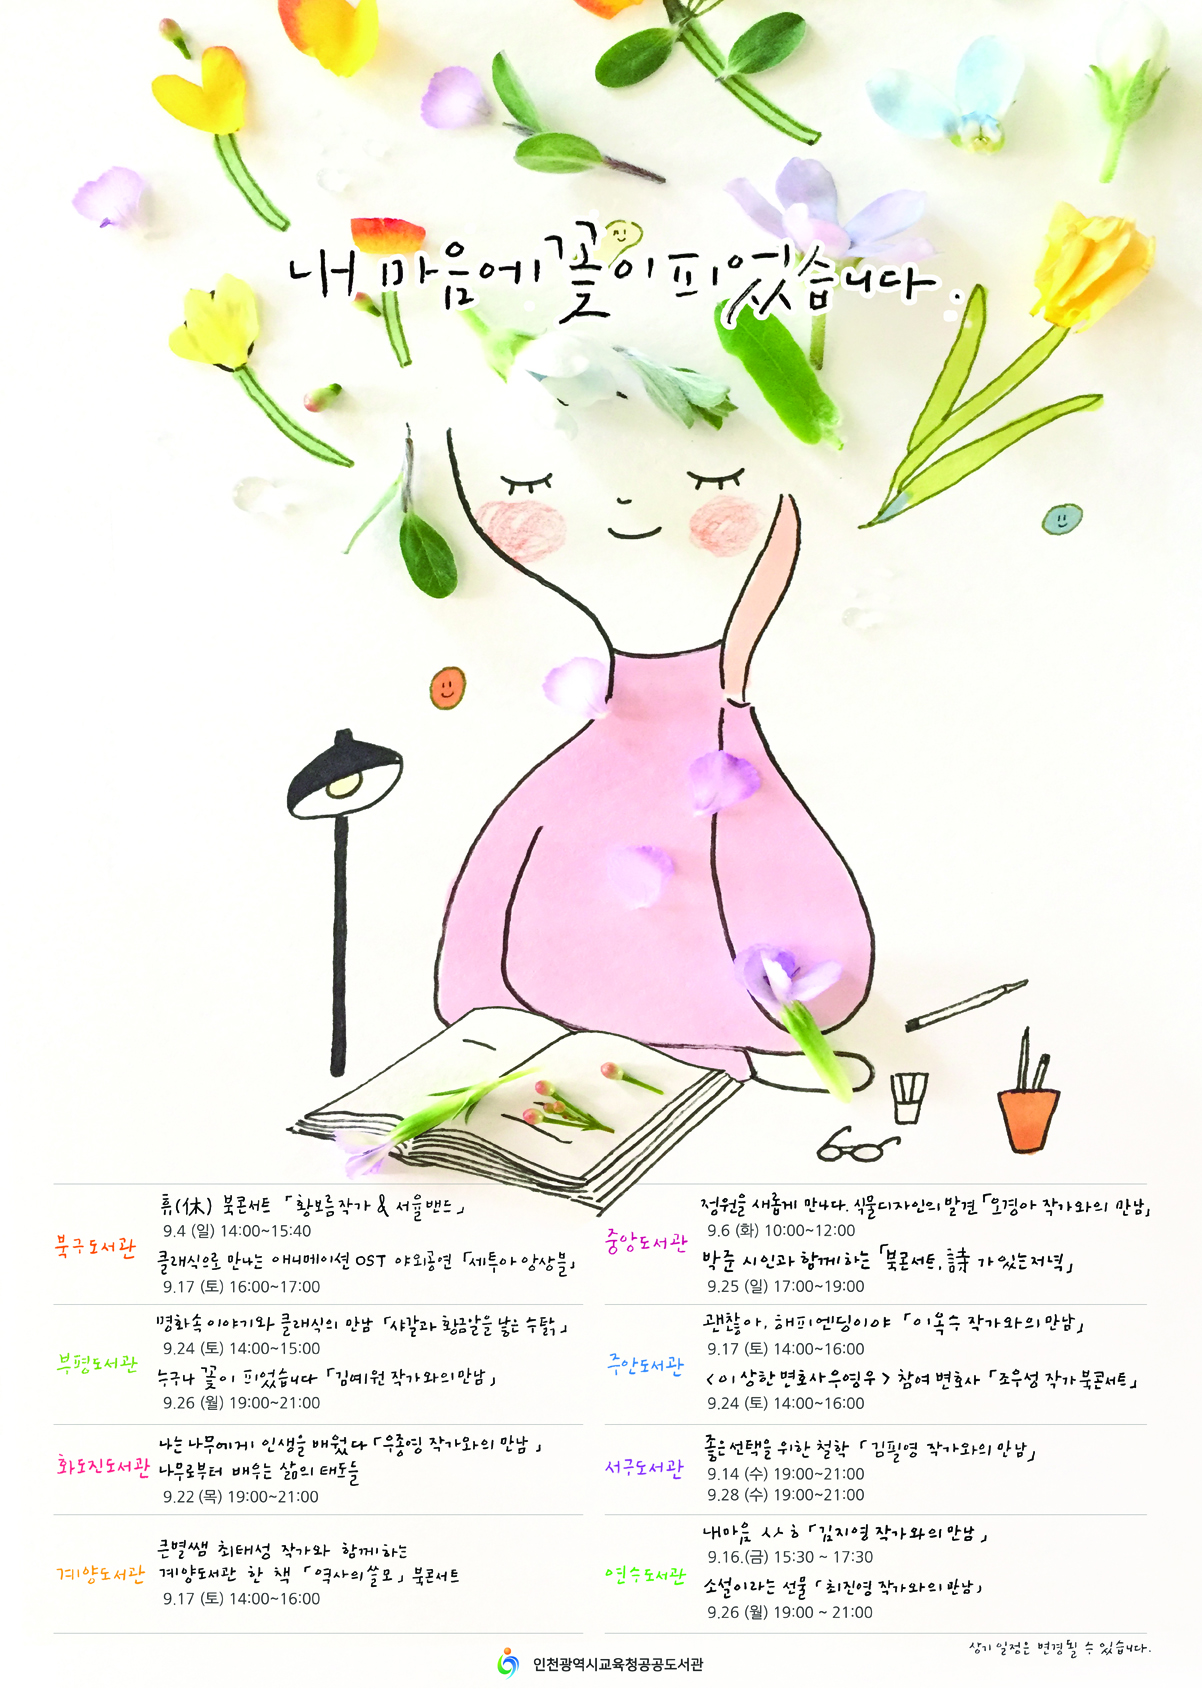 내 마음에 꽃이 피었습니다.
북구도서관
휴(休) 북콘서트 「황보름작가 & 서율밴드」
9.4 (일) 14:00~15:40
클래식으로 만나는 애니메이션 OST 야외공연 「세투아 앙상블」
9.17 (토) 16:00~17:00
부평도서관
명화속 이야기와 클래식의 만남 「샤갈과 황금알을 낳은 수탉」
9.24 (토) 14:00~15:00
누구나 꽃이 피었습니다 「김예원 작가와의 만남」
9.26 (월) 19:00~21:00
화도진도서관
나는 나무에게 인생을 배웠다 「우종영 작가와의 만남」
나무로부터 배우는 삶의 태도들
9.22 (목) 19:00~21:00
계양도서관
큰별쌤 최태성 작가와 함께하는
계양도서관 한 책 「역사의 쓸모」 북콘서트
9.17 (토) 14:00~16:00
중앙도서관
정원을 새롭게 만나다. 식물디자인의 발견 「오경아 작가와의 만남」
9.6 (화) 10:00~12:00
박준 시인과 함께하는 「북콘서트, 詩가 있는 저녁」
9.25 (일) 17:00~19:00
주안도서관
괜찮아, 해피엔딩이야 「이옥수 작가와의 만남」
9.17 (토) 14:00~16:00
<이상한 변호사 우영우> 참여 변호사 「조우성 작가 북콘서트」
9.24 (토) 14:00~16:00
서구도서관
좋은 선택을 위한 철학 「김필영 작가와의 만남」
9.14 (수) 19:00~21:00
9.28 (수) 19:00~21:00
연수도서관
내마음 ㅅㅅㅎ 「김지영 작가와의 만남」
9.16.(금) 15:30 ~ 17:30
소설이라는 선물 「최진영 작가와의 만남」
9.26 (월) 19:00 ~ 21:00
상기 일정은 변경될 수 있습니다.
인천광역시교육청공공도서관